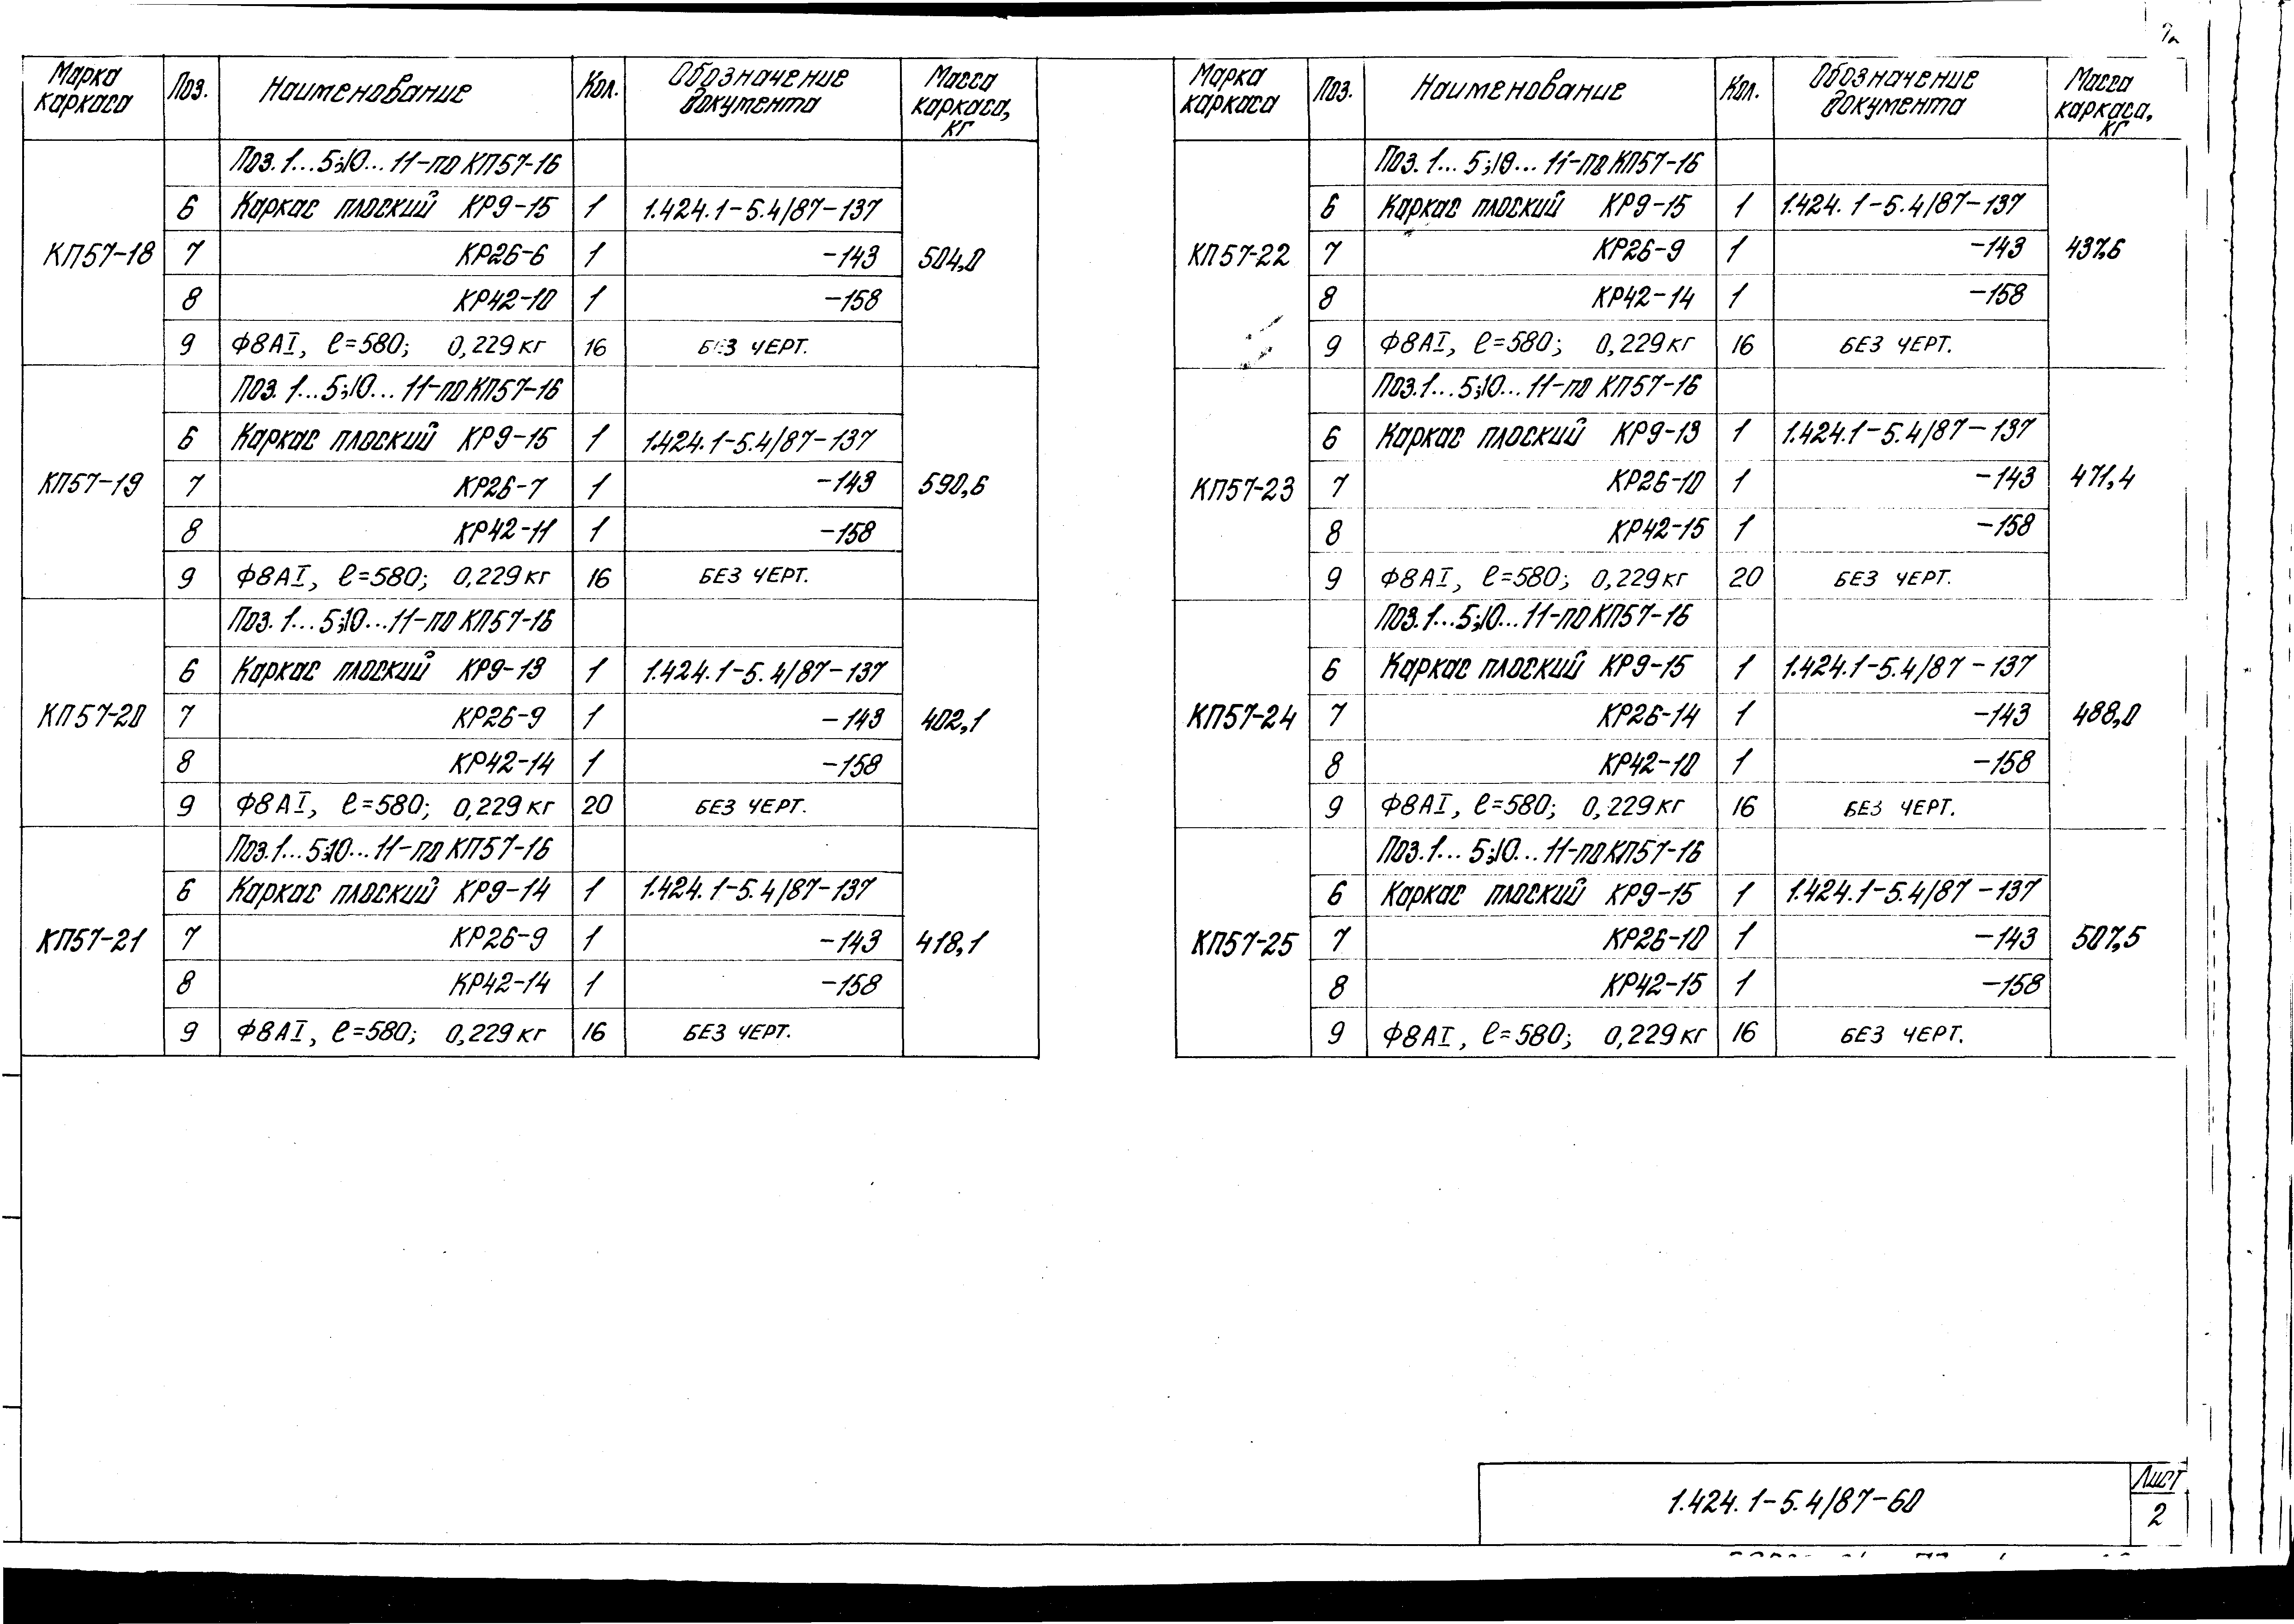 Марка каркаса Поз. Наименование Кол. Обозначение документа Масса каркаса, кг
КП57-18 504,0
Поз. 1...5;10...11-по КП57-16
6 Каркас плоский КР9-15 1 1.424.1-5.4/87-137
7 КР26-6 1 -143
8 КР42-10 1 -158
9 Ф8АI, ℓ=580; 0,229кг 16 БЕЗ ЧЕРТ.
КП57-19 590,6
Поз. 1...5;10...11-по КП57-16
6 Каркас плоский КР9-15 1 1.424.1-5.4/87-137
7 КР26-7 1 -143
8 КР42-11 1 -158
9 Ф8АI, ℓ=580; 0,229кг 16 БЕЗ ЧЕРТ.
КП57-20 402,1
Поз. 1...5;10...11-по КП57-16
6 Каркас плоский КР9-13 1 1.424.1-5.4/87-137
7 КР26-9 1 -143
8 КР42-14 1 -158
9 Ф8АI, ℓ=580; 0,229кг 20 БЕЗ ЧЕРТ.
КП57-21 418,1
Поз. 1...5;10...11-по КП57-16
6 Каркас плоский КР9-14 1 1.424.1-5.4/87-137
7 КР26-9 1 -143
8 КР42-14 1 -158
9 Ф8АI, ℓ=580; 0,229кг 16 БЕЗ ЧЕРТ.
Марка каркаса Поз. Наименование Кол. Обозначение документа Масса каркаса, кг
КП57-22 437,6
Поз. 1...5;10...11-по КП57-16
6 Каркас плоский КР9-15 1 1.424.1-5.4/87-137
7 КР26-9 1 -143
8 КР42-14 1 -158
9 Ф8АI, ℓ=580; 0,229кг 16 БЕЗ ЧЕРТ.
КП57-23 471,4
Поз. 1...5;10...11-по КП57-16
6 Каркас плоский КР9-13 1 1.424.1-5.4/87-137
7 КР26-10 1 -143
8 КР42-15 1 -158
9 Ф8АI, ℓ=580; 0,229кг 20 БЕЗ ЧЕРТ.
КП57-24 488,0
Поз. 1...5;10...11-по КП57-16
6 Каркас плоский КР9-15 1 1.424.1-5.4/87-137
7 КР26-14 1 -143
8 КР42-10 1 -158
9 Ф8АI, ℓ=580; 0,229кг 16 БЕЗ ЧЕРТ.
КП57-25 507,5
Поз. 1...5;10...11-по КП57-16
6 Каркас плоский КР9-15 1 1.424.1-5.4/87-137
7 КР26-10 1 -143
8 КР42-15 1 -158
9 Ф8АI, ℓ=580; 0,229кг 16 БЕЗ ЧЕРТ.
1.424.1-5.4/87-60
Лист
2